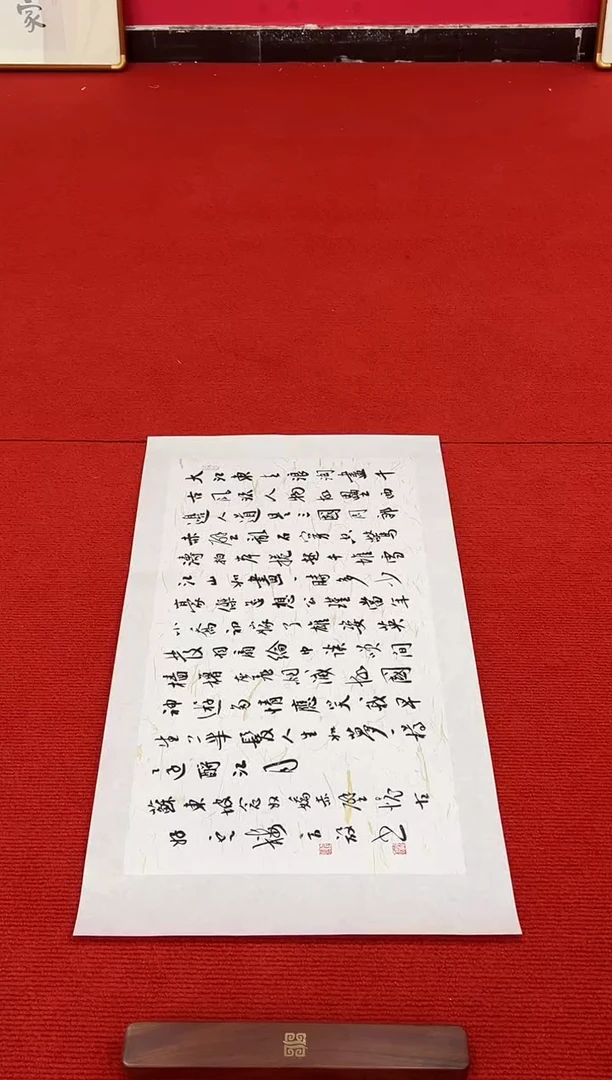 家
大江東去浪淘盡千
古風流人物故壘西
邊人道是三國周郎
赤壁亂石穿空驚
濤拍岸捲起千堆雪
江山如畫一時多少
豪傑遙想公瑾當年
小喬初嫁了雄姿英
發羽扇綸巾談笑間
檣櫓灰飛煙滅故國
神遊多情應笑我早
生華髮人生如夢一樽
還酹江月
蘇東坡念奴嬌赤壁懷古